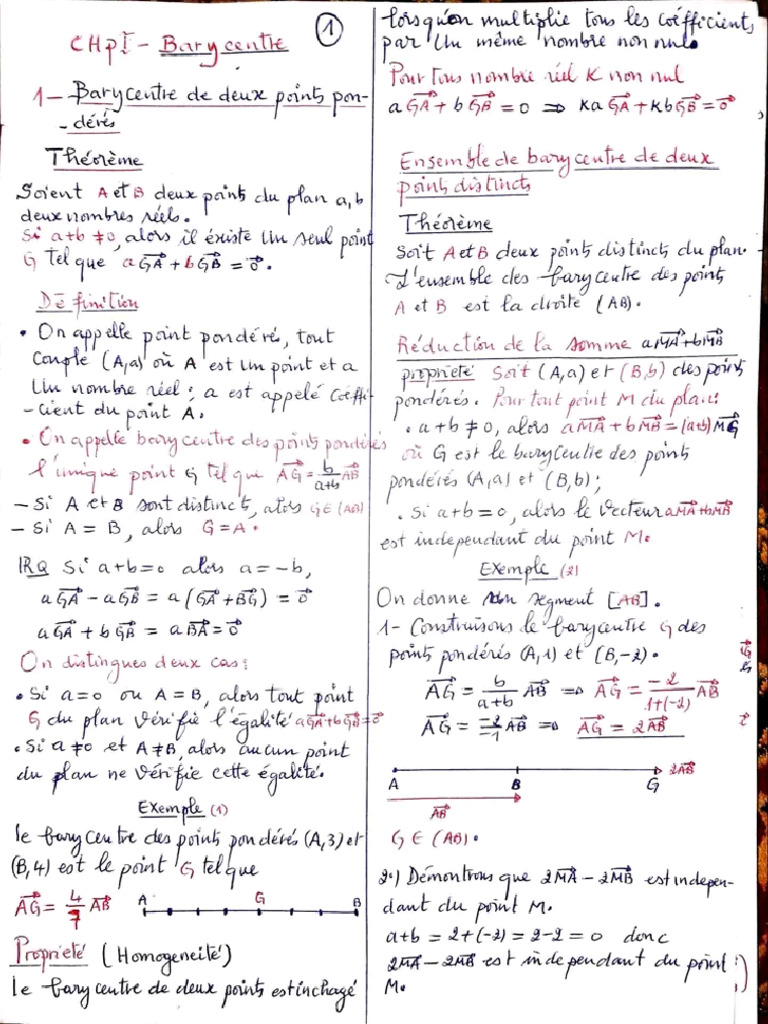 CHpI - Barycentre
1
1- Barycentre de deux points pon-
-dérés
Théorème
Soient A et B deux points du plan a, b
deux nombres réels.
Si a+b ≠ 0, alors il éxiste un seul point
G tel que aGA⃗ + bGB⃗ = 0⃗.
Définition
• On appelle point pondérés, tout
couple (A,a) où A est un point et a
un nombre réel ; a est appelé coeffi-
-cient du point A.
• On appelle barycentre des points pondérés
l'unique point G tel que AG⃗ = b/(a+b) AB⃗
- Si A et B sont distincts, alors G∈(AB)
- Si A = B, alors G=A.
RQ Si a+b=0 alors a=-b,
aGA⃗ - aGB⃗ = a(GA⃗ + BG⃗) = 0⃗
aGA⃗ + bGB⃗ = aBA⃗ = 0⃗
On distingues deux cas :
• Si a=0 ou A = B, alors tout point
G du plan vérifie l'égalité aGA⃗+bGB⃗=0⃗
• Si a≠0 et A≠B, alors aucun point
du plan ne vérifie cette égalité.
Exemple (1)
le barycentre des points pondérés (A,3) et
(B,4) est le point G tel que
AG⃗ = 4/7 AB⃗
A G B
Propriété (Homogeneité)
le barycentre de deux points est inchagé
lorsqu'on multiplie tous les coéfficients
par un même nombre non nul.
Pour tous nombre réel K non nul
aGA⃗ + bGB⃗ = 0 ⇒ kaGA⃗ + kbGB⃗ = 0⃗
Ensemble de barycentre de deux
points distincts
Théorème
Soit A et B deux points distincts du plan.
L'ensemble des barycentre des points
A et B est la droite (AB).
Réduction de la somme aMA⃗+bMB⃗
propriete Soit (A,a) et (B,b) des points
pondérés. Pour tout point M du plan :
• a+b ≠ 0, alors aMA⃗ + bMB⃗ = (a+b)MG⃗
où G est le barycentre des points
pondérés (A,a) et (B,b) ;
• Si a+b = 0, alors le vecteur aMA⃗+bMB⃗
est independant du point M.
Exemple (2)
On donne un segment [AB].
1- Construisons le barycentre G des
points pondérés (A,1) et (B,-2).
AG⃗ = b/(a+b) AB⃗ ⇒ AG⃗ = -2/(1+(-2)) AB⃗
AG⃗ = -2/-1 AB⃗ ⇒ AG⃗ = 2AB⃗
A B G 2AB⃗
AB⃗
G ∈ (AB).
2°) Démontrons que 2MA⃗ - 2MB⃗ est indepen-
dant du point M.
a+b = 2+(-2) = 2-2 = 0 donc
2MA⃗ - 2MB⃗ est independant du point
M.